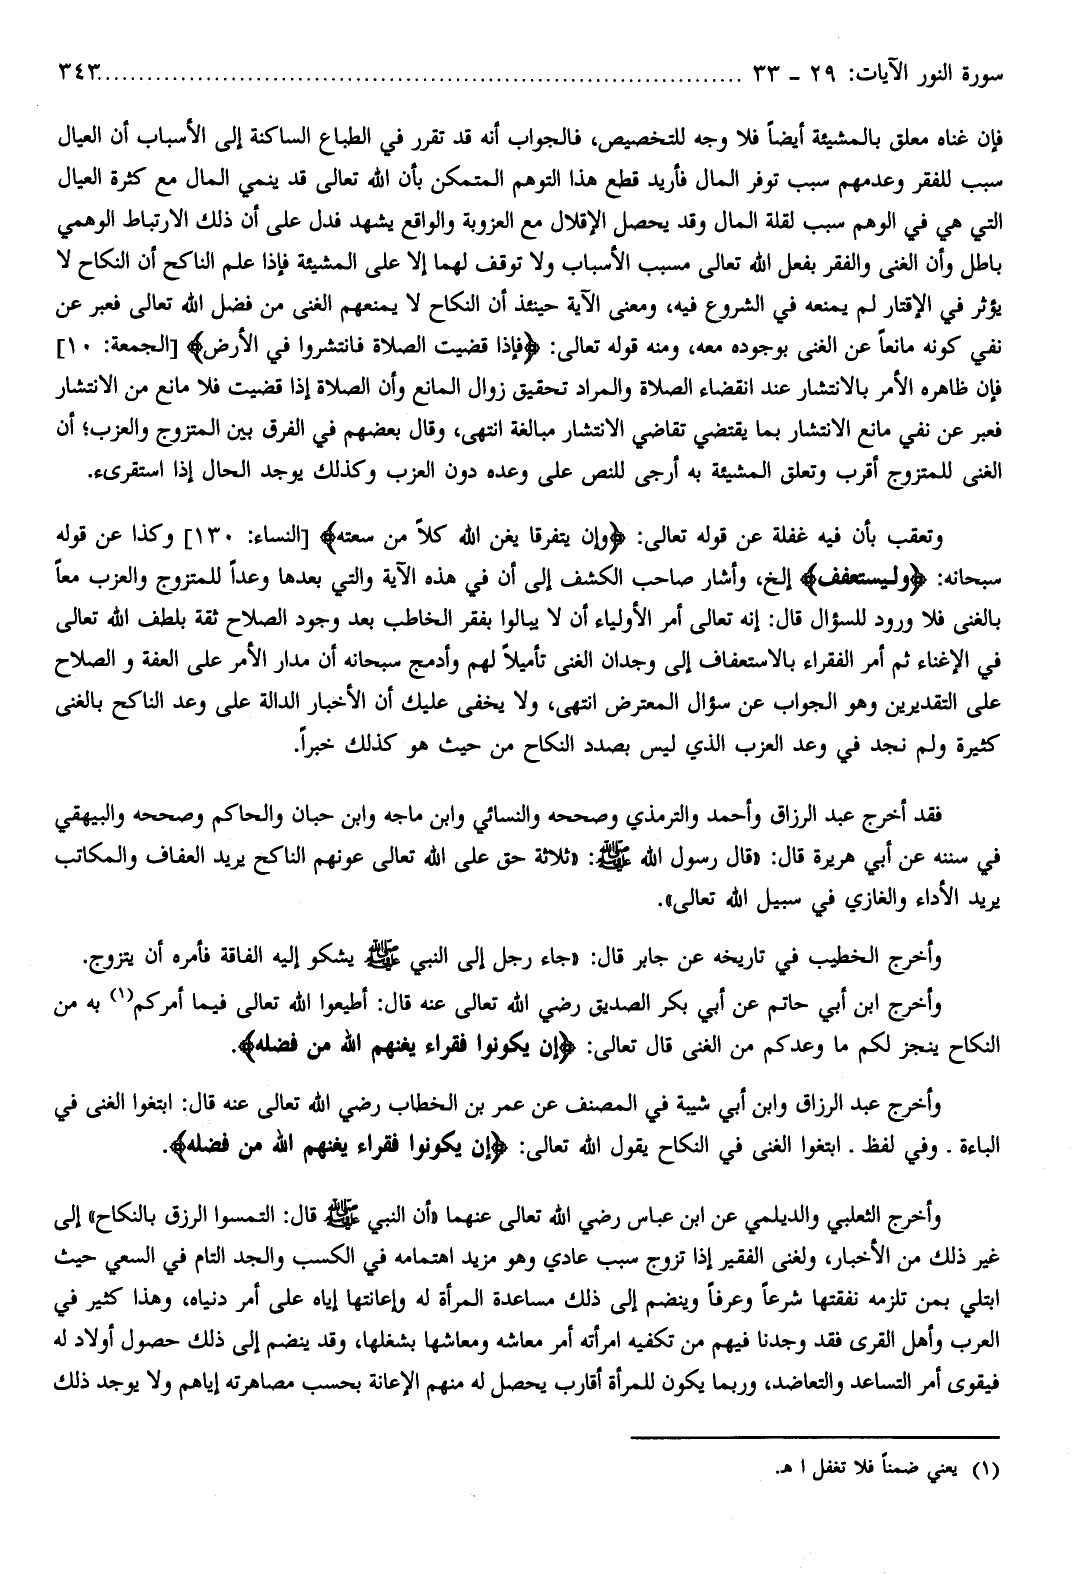 سورة النور الآيات: ٢٩ ـ ٣٣ ................................................................................ ٣٤٣
فإن غناه معلق بالمشيئة أيضاً فلا وجه للتخصيص، فالجواب أنه قد تقرر في الطباع الساكنة إلى الأسباب أن العيال
سبب للفقر وعدمهم سبب توفر المال فأريد قطع هذا التوهم المتمكن بأن الله تعالى قد ينمي المال مع كثرة العيال
التي هي في الوهم سبب لقلة المال وقد يحصل الإقلال مع العزوبة والواقع يشهد فدل على أن ذلك الارتباط الوهمي
باطل وأن الغنى والفقر بفعل الله تعالى مسبب الأسباب ولا توقف لهما إلا على المشيئة فإذا علم الناكح أن النكاح لا
يؤثر في الإقتار لم يمنعه في الشروع فيه، ومعنى الآية حينئذ أن النكاح لا يمنعهم الغنى من فضل الله تعالى فعبر عن
نفي كونه مانعاً عن الغنى بوجوده معه، ومنه قوله تعالى: ﴿فإذا قضيت الصلاة فانتشروا في الأرض﴾ [الجمعة: ١٠]
فإن ظاهره الأمر بالانتشار عند انقضاء الصلاة والمراد تحقيق زوال المانع وأن الصلاة إذا قضيت فلا مانع من الانتشار
فعبر عن نفي مانع الانتشار بما يقتضي تقاضي الانتشار مبالغة انتهى، وقال بعضهم في الفرق بين المتزوج والعزب؛ أن
الغنى للمتزوج أقرب وتعلق المشيئة به أرجى للنص على وعده دون العزب وكذلك يوجد الحال إذا استقرىء.
وتعقب بأن فيه غفلة عن قوله تعالى: ﴿وإن يتفرقا يغن الله كلاً من سعته﴾ [النساء: ١٣٠] وكذا عن قوله
سبحانه: ﴿وليستعفف﴾ إلخ، وأشار صاحب الكشف إلى أن في هذه الآية والتي بعدها وعداً للمتزوج والعزب معاً
بالغنى فلا ورود للسؤال قال: إنه تعالى أمر الأولياء أن لا يبالوا بفقر الخاطب بعد وجود الصلاح ثقة بلطف الله تعالى
في الإغناء ثم أمر الفقراء بالاستعفاف إلى وجدان الغنى تأميلاً لهم وأدمج سبحانه أن مدار الأمر على العفة و الصلاح
على التقديرين وهو الجواب عن سؤال المعترض انتهى، ولا يخفى عليك أن الأخبار الدالة على وعد الناكح بالغنى
كثيرة ولم نجد في وعد العزب الذي ليس بصدد النكاح من حيث هو كذلك خبراً.
فقد أخرج عبد الرزاق وأحمد والترمذي وصححه والنسائي وابن ماجه وابن حبان والحاكم وصححه والبيهقي
في سننه عن أبي هريرة قال: «قال رسول الله ﷺ: «ثلاثة حق على الله تعالى عونهم الناكح يريد العفاف والمكاتب
يريد الأداء والغازي في سبيل الله تعالى».
وأخرج الخطيب في تاريخه عن جابر قال: «جاء رجل إلى النبي ﷺ يشكو إليه الفاقة فأمره أن يتزوج.
وأخرج ابن أبي حاتم عن أبي بكر الصديق رضي الله تعالى عنه قال: أطيعوا الله تعالى فيما أمركم(١) به من
النكاح ينجز لكم ما وعدكم من الغنى قال تعالى: ﴿إن يكونوا فقراء يغنهم الله من فضله﴾.
وأخرج عبد الرزاق وابن أبي شيبة في المصنف عن عمر بن الخطاب رضي الله تعالى عنه قال: ابتغوا الغنى في
الباءة . وفي لفظ . ابتغوا الغنى في النكاح يقول الله تعالى: ﴿إن يكونوا فقراء يغنهم الله من فضله﴾.
وأخرج الثعلبي والديلمي عن ابن عباس رضي الله تعالى عنهما «أن النبي ﷺ قال: التمسوا الرزق بالنكاح» إلى
غير ذلك من الأخبار، ولغنى الفقير إذا تزوج سبب عادي وهو مزيد اهتمامه في الكسب والجد التام في السعي حيث
ابتلي بمن تلزمه نفقتها شرعاً وعرفاً وينضم إلى ذلك مساعدة المرأة له وإعانتها إياه على أمر دنياه، وهذا كثير في
العرب وأهل القرى فقد وجدنا فيهم من تكفيه امرأته أمر معاشه ومعاشها بشغلها، وقد ينضم إلى ذلك حصول أولاد له
فيقوى أمر التساعد والتعاضد، وربما يكون للمرأة أقارب يحصل له منهم الإعانة بحسب مصاهرته إياهم ولا يوجد ذلك
(١) يعني ضمناً فلا تغفل ا هـ.